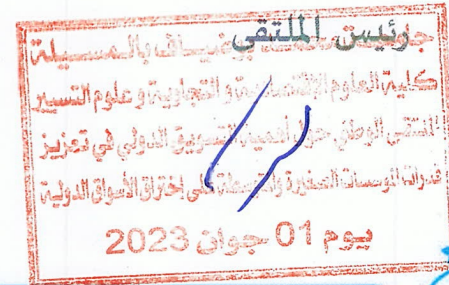 رئيس الملتقى
جامعة محمد بوضياف بالمسيلة
كلية العلوم الإقتصادية و التجارية و علوم التسيير
الملتقى الوطني حول أهمية التسويق الدولي في تعزيز
قدرات المؤسسات الصغيرة والمتوسطة على إختراق الأسواق الدولية
يوم 01 جوان 2023